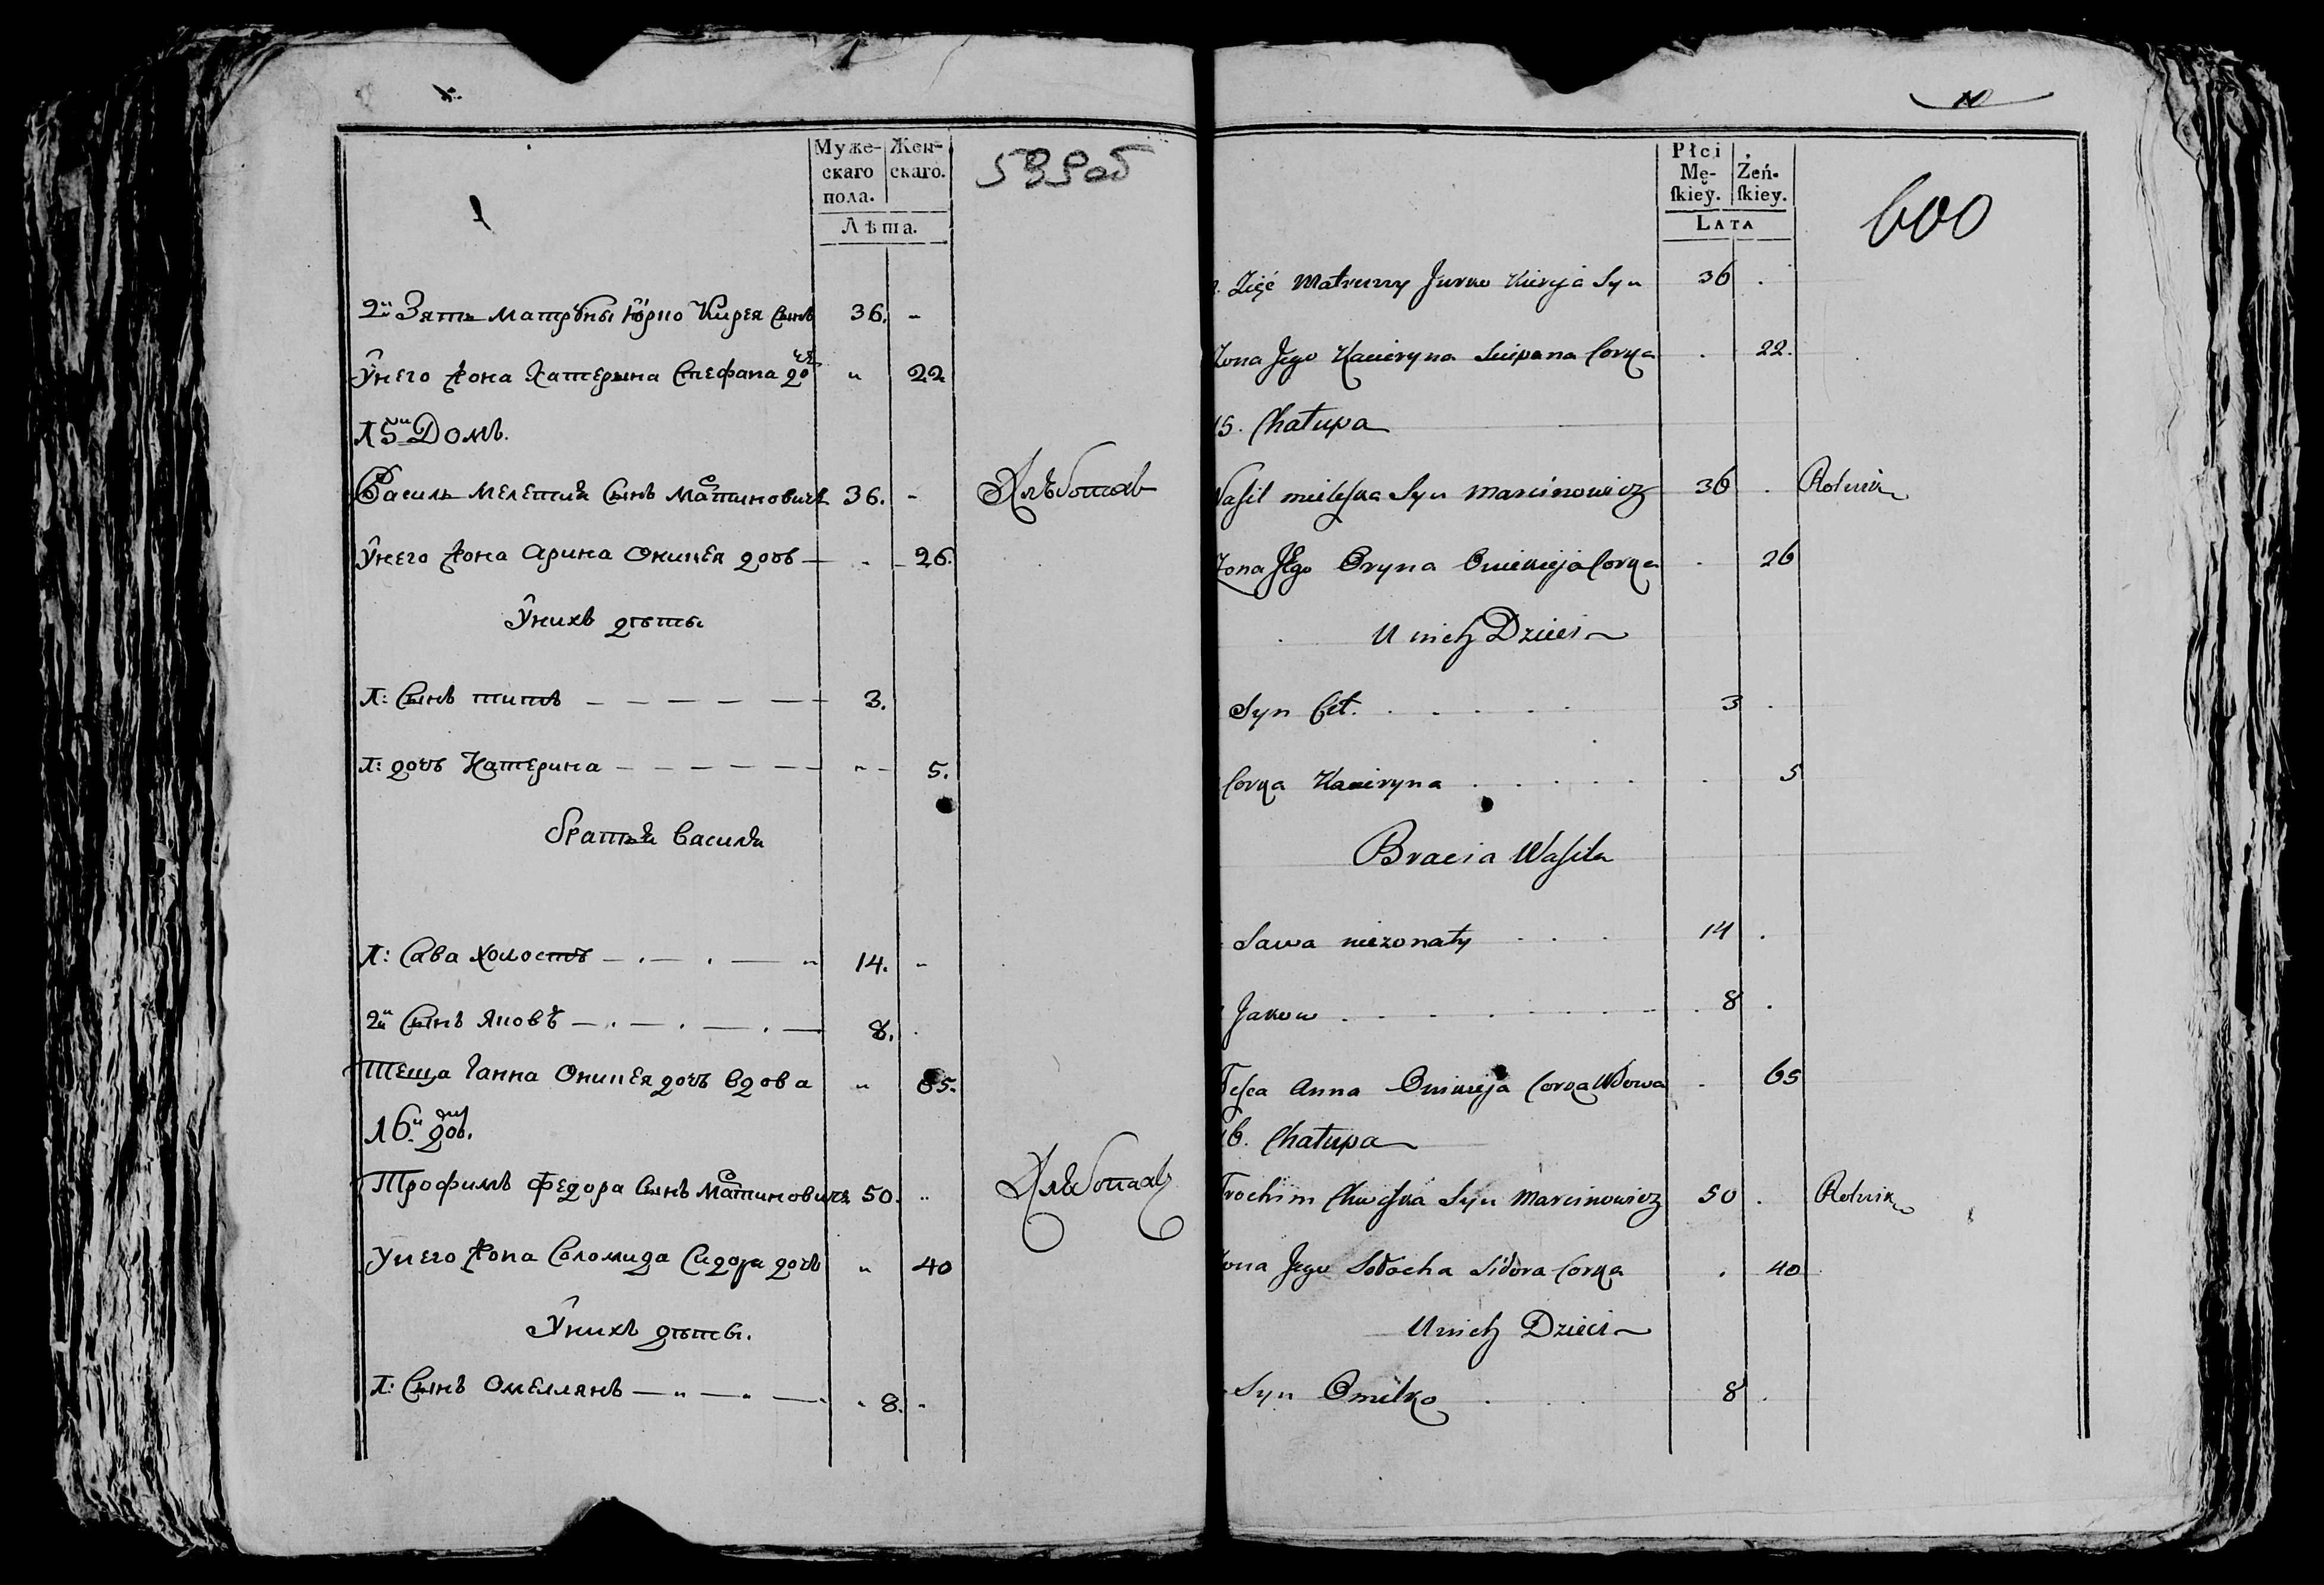 Муже-
скаго
пола.
Жен-
скаго.
Лѣта.
599об
2й Зять Матрѵны Юрко Кирея Сынъ 36. -
Ѵнего жона Катерына Стефана дочь " 22
15й Домъ.
Василь Мелешка Сынъ Мартиновичъ 36. - Хлѣбопахъ
Ѵнего жона Орина Оникея дочь - 26.
Ѵнихъ дѣты
1: Сынъ титъ 3.
1: дочь Катерина 5.
братья Василя
1: Сава холостъ 14. -
2й Сынъ Яковъ 8.
Теща Ганна Оникея дочъ вдова " 65.
16й до.
Трофимъ Федора Сынъ Мартиновичъ 50. Хлѣбопахъ
Унего жона Соломида Сидора дочъ " 40
Ѵнихъ дѣты.
1: Сынъ Омелянъ 8. -
Płci
Mę-
ſkiéy.
Żeń-
ſkiey.
LATA
600
Zięć Matruny Jurko Kireja Syn 36 .
Zona Jego Kacieryna Sciepana Corka . 22.
15. Chałupa
Waſil mieleſzka Syn Marcinowicz 36 . Rolnik
Zona Jego Oryna Onikieja Corka . 26
U nich Dzieci
Syn Cit. 3 .
Corka Kacieryna . 5
Bracia Waſila
Sawa niezonaty 14 .
Jakow 8 .
Teſca Anna Onikieja Corka Wdowa . 65
16. Chałupa
Trochim Syn Marcinowicz 50 . Rolnik
Jego Sołocha Sidora Corka . 40
U nich Dzieci
Syn Omilko 8 .